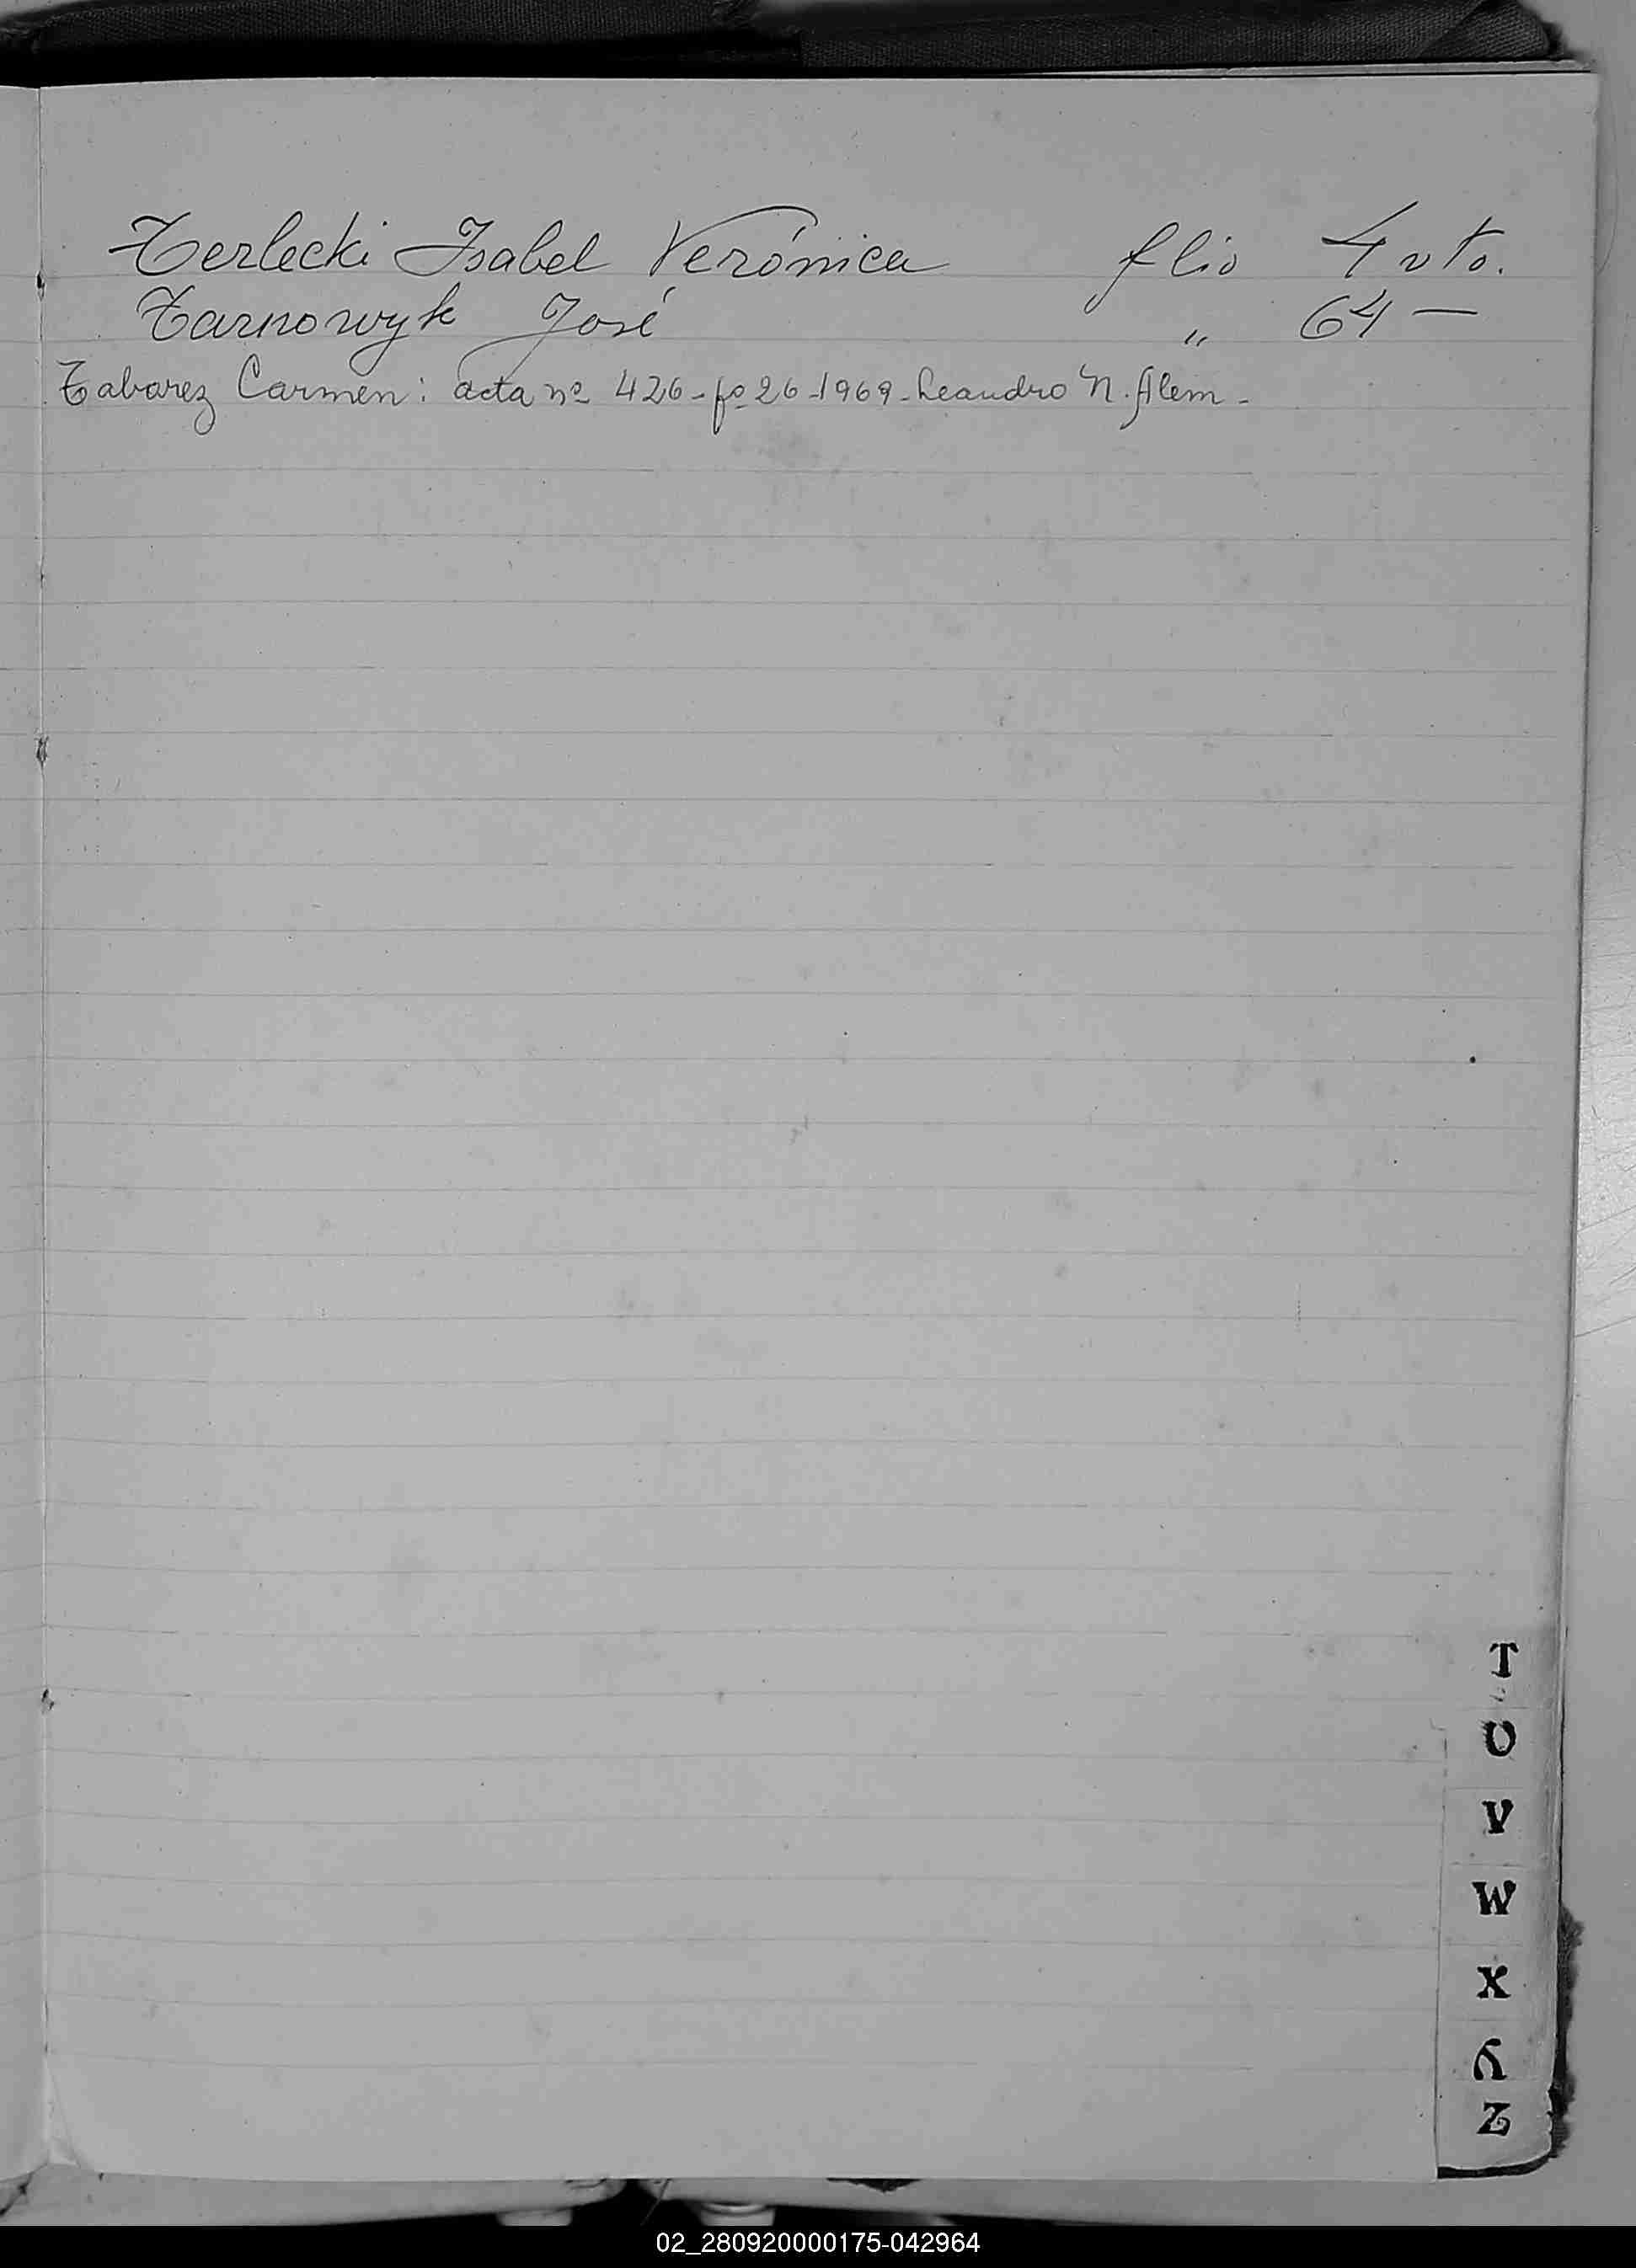 Terlecki Isabel Verónica flio 4 vto.
Tarnowyk José " 64 —
Tabarez Carmen: acta nº 426 - fº 26 - 1969 - Leandro N. Alem -
T
U
V
W
X
Y
Z
02_280920000175-042964